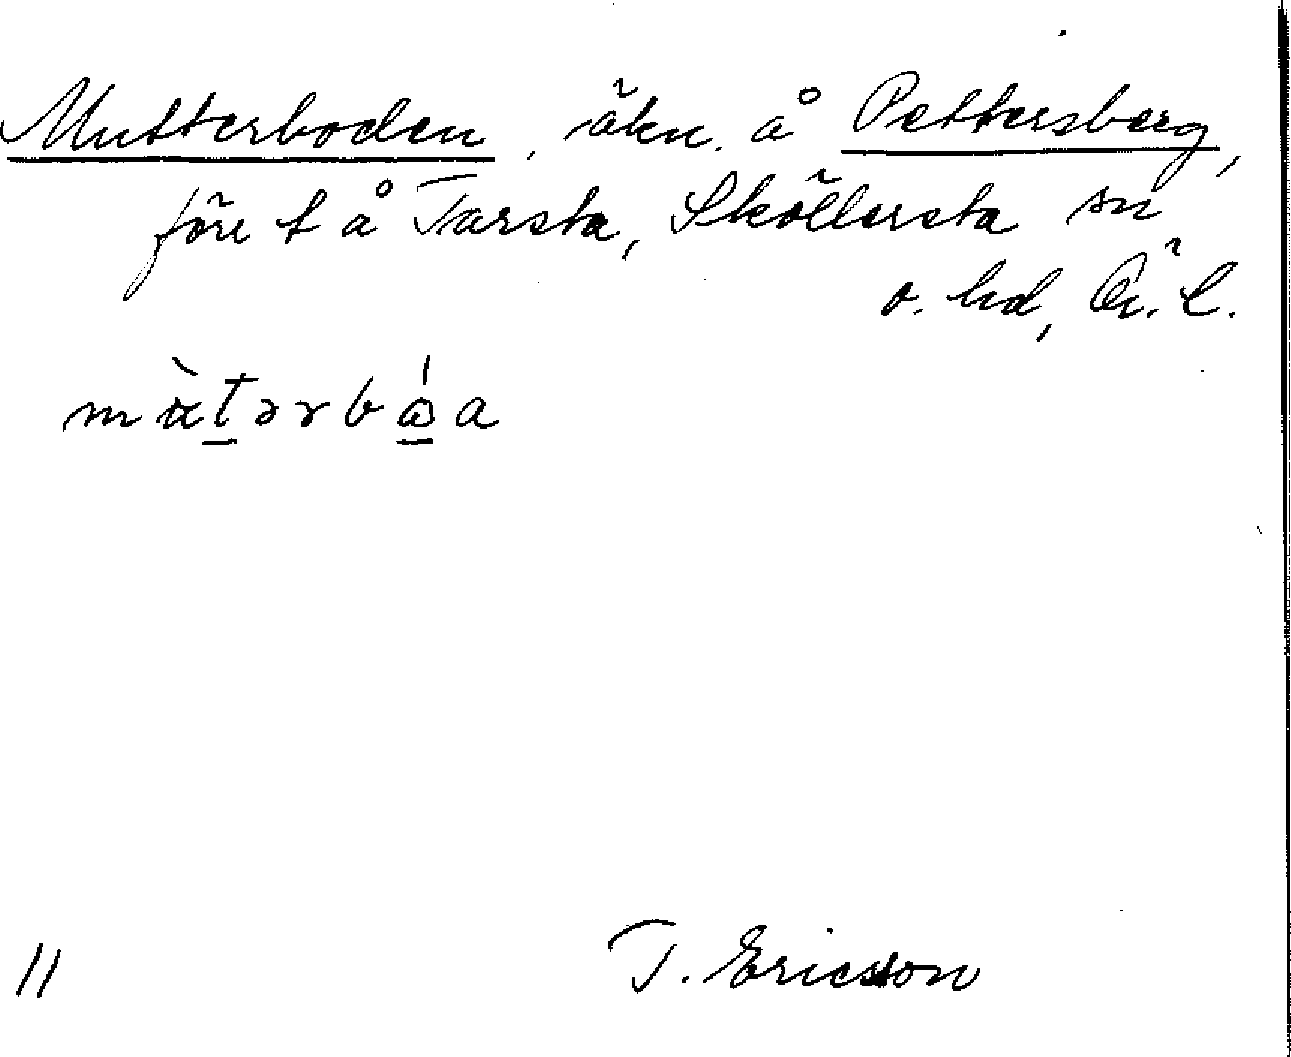 Mutterboden, äkn. å Pettersberg,
före t å Tarsta, Sköllersta sn
o. hd, Ö. L.
11
T. Ericsson